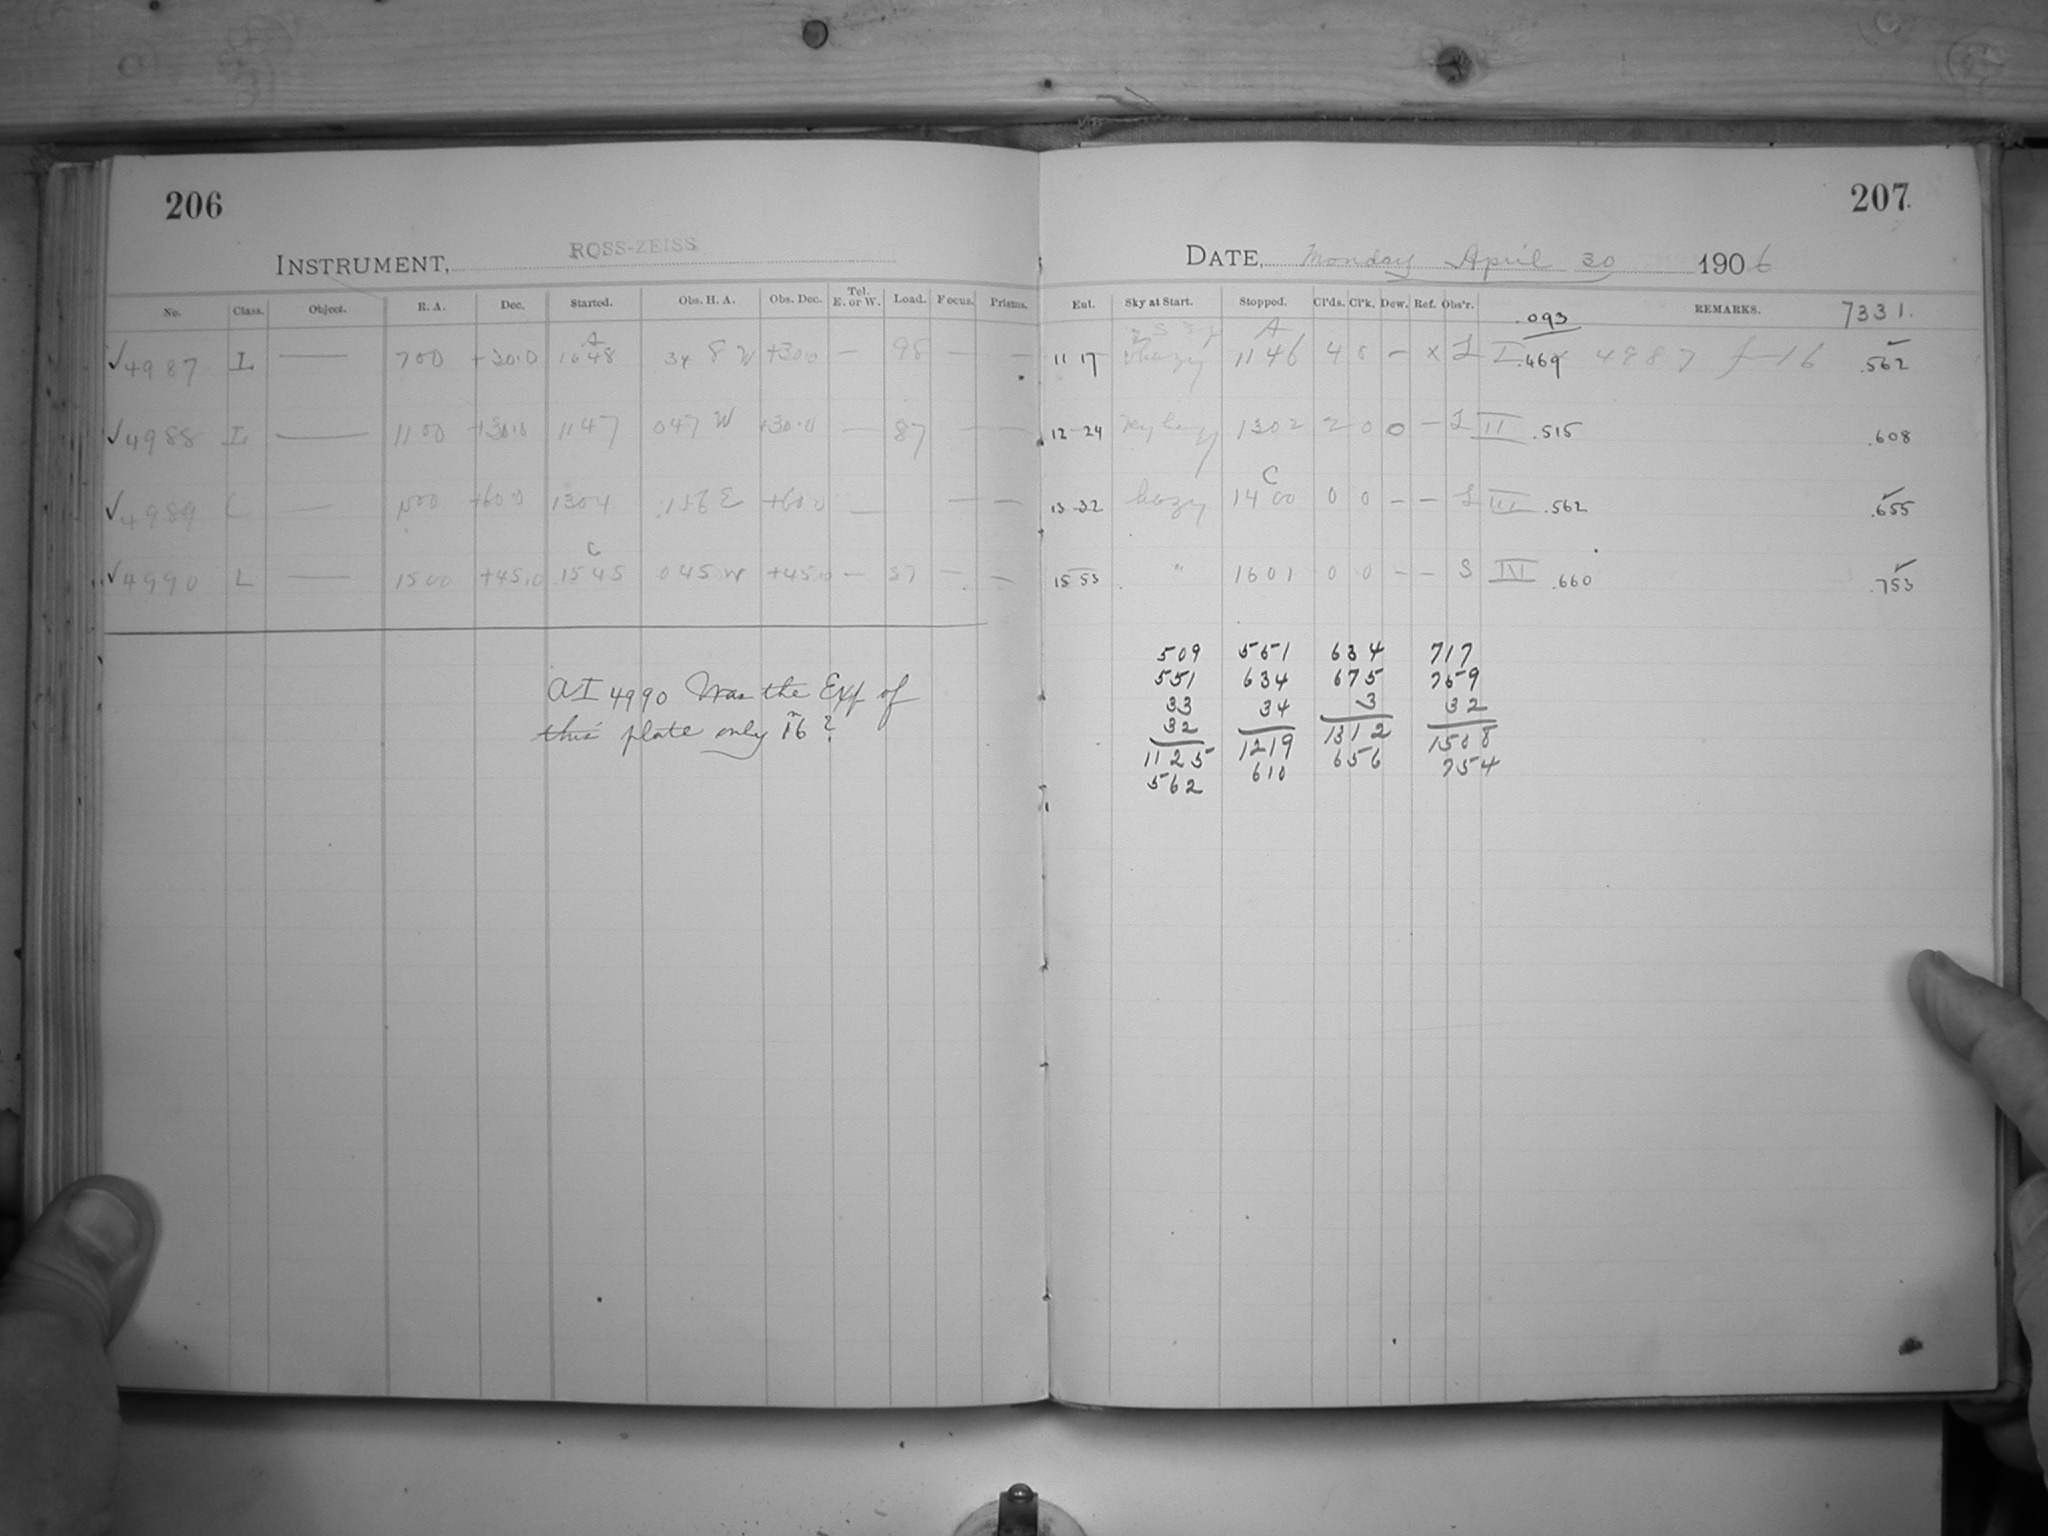 206
INSTRUMENT, ROSS-ZEISS
No. Class. Object. R. A. Dec. Started. Obs. H. A. Obs. Dec. Tel. E. or W. Load. Focus. Prisms.
A
✓4987 L — 700 +30.0 1048 34 8 W +30.0 — 98 — —
✓4988 L — 1100 +30.0 1147 047 W +30.0 — 87 — —
✓4989 L — +60.0 1304 .156 E +60.0 — — —
C
✓4990 L — 1500 +45.0 1545 045 W +45.0 — 37 — —
AI 4990 Was the Exp of
this plate only 16 m?
207
DATE, Monday April 30 1906
Ent. Sky at Start. Stopped. Cl'ds. Cl'k. Dew. Ref. Obs'r. REMARKS. 7331.
.093
A
11 17 hazy 1146 4 0 — x L I .469 4987 f-16 .562
12-24 1302 2 0 0 — L II .515 .608
C
13-32 hazy 1400 0 0 — — L III .562 .655
15 53 " 1601 0 0 — — S IV .660 .753
509 551 634 717
551 634 675 759
33 34 3 32
32 1219 1312 1508
1125 610 656 754
562